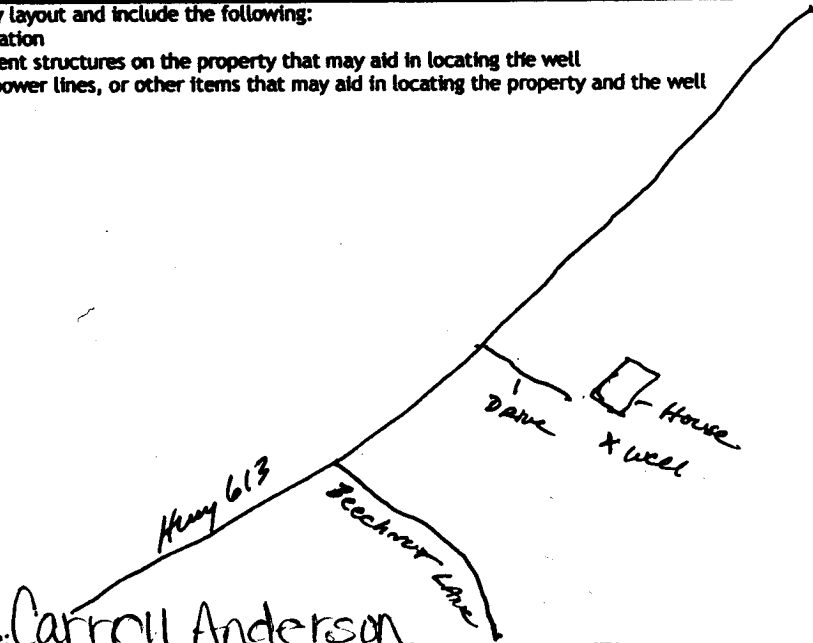 layout and include the following:
ation
ent structures on the property that may aid in locating the well
power lines, or other items that may aid in locating the property and the well
Drive
House
x well
Hwy 613
Beechnut Lane
Carroll Anderson